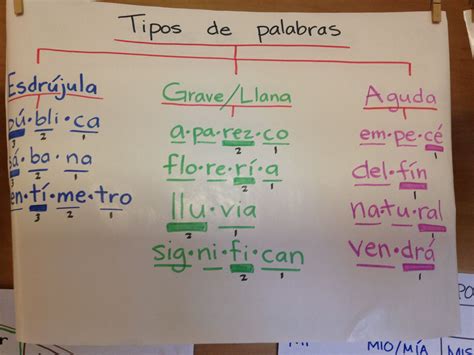 Tipos de palabras
Esdrújula
pú·bli·ca
3 2 1
sá·ba·na
3 2 1
en·tí·me·tro
3 2 1
Grave/Llana
a·pa·rez·co
2 1
flo·re·rí·a
2 1
llu·via
2 1
sig·ni·fi·can
2 1
Aguda
em·pe·cé
1
del·fín
1
na·tu·ral
1
ven·drá
1
PO
MIO/MÍA
MIS